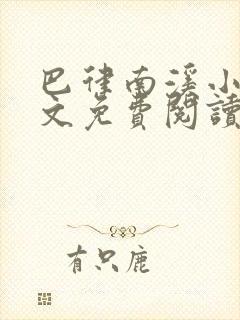 巴律南溪小
文免費閱讀
有只鹿